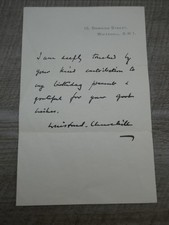 I am deeply touched by
your kind contribution to
my birthday present &
grateful for your good
wishes.
Winston S. Churchill